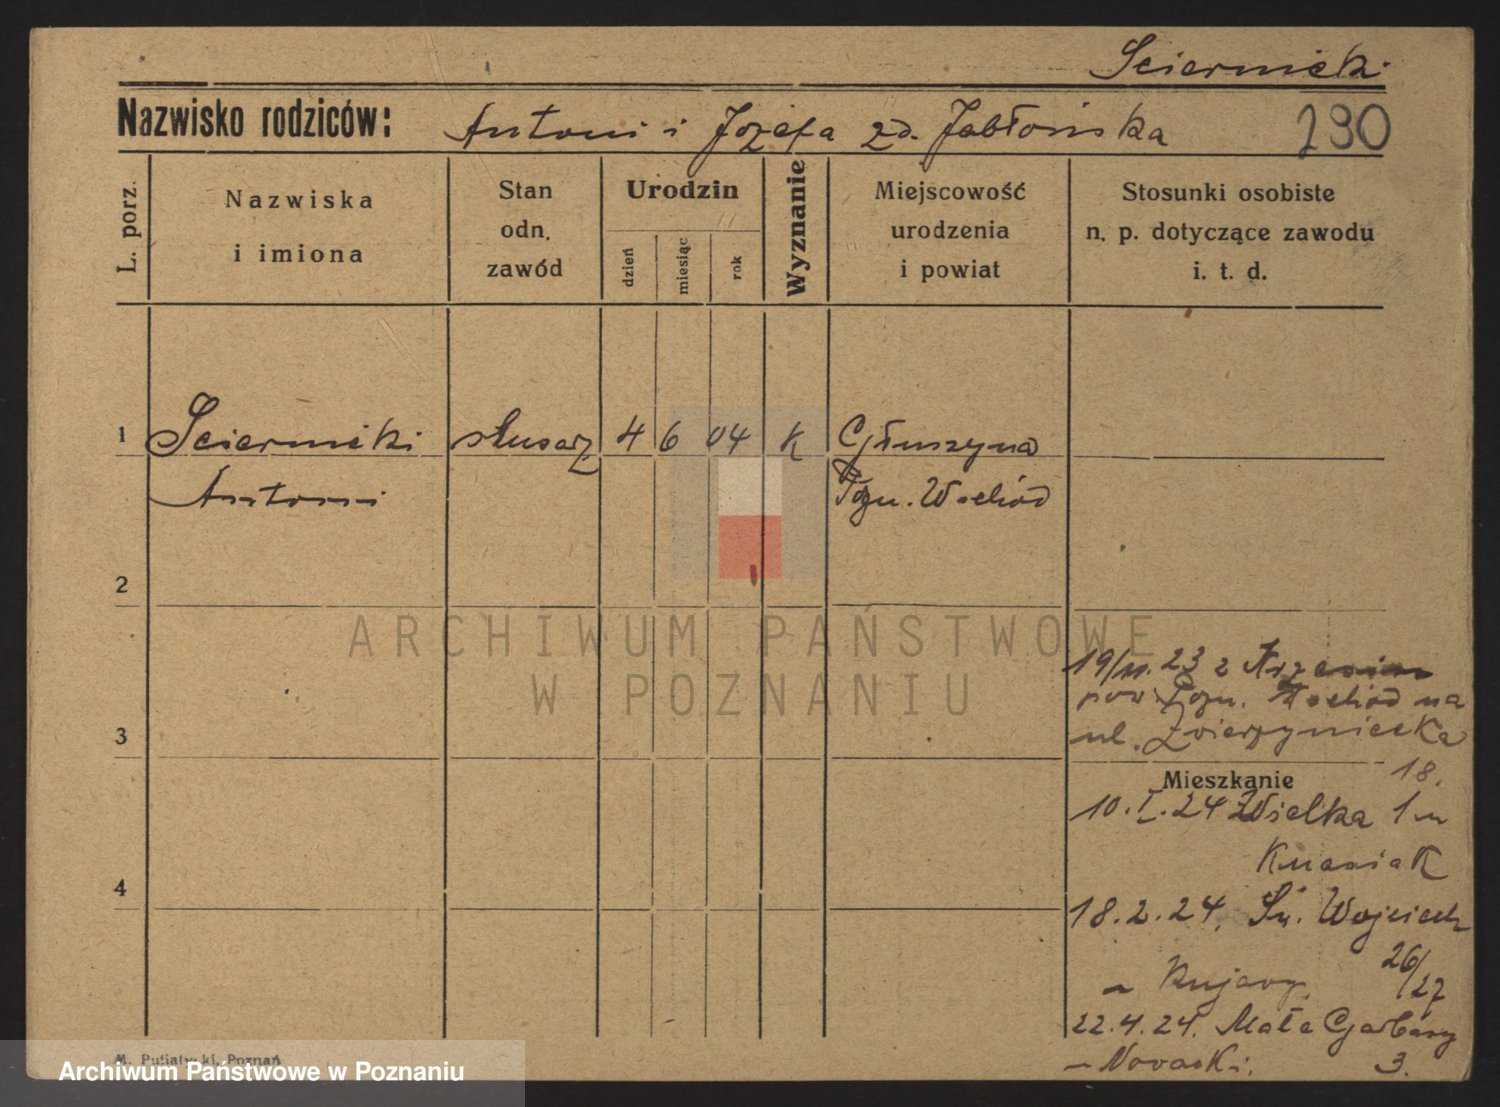 Sciernicki
Nazwisko rodziców: Antoni i Józefa zd. Jabłońska 290
L. porz.
Nazwiska
i imiona
Stan
odn.
zawód
Urodzin
dzień
miesiąc
rok
Wyznanie
Miejscowość
urodzenia
i powiat
Stosunki osobiste
n. p. dotyczące zawodu
i. t. d.
1 Sciernicki ślusarz 4 6 04 K Głuszyna
Antoni Pozn. Wschód
2
ARCHIWUM PAŃSTWOWE
W POZNANIU
19/11. 23 z
pow Pozn. Wschód na
3 ul. Zwierzyniecka
18.
Mieszkanie
10. I. 24 Wielka 1
4
18. 2. 24. Św. Wojciech
26/27
Kujawy
22. 4. 24. Małe Garbary
Nowacki. 3.
M. Putiatycki, Poznań
Archiwum Państwowe w Poznaniu